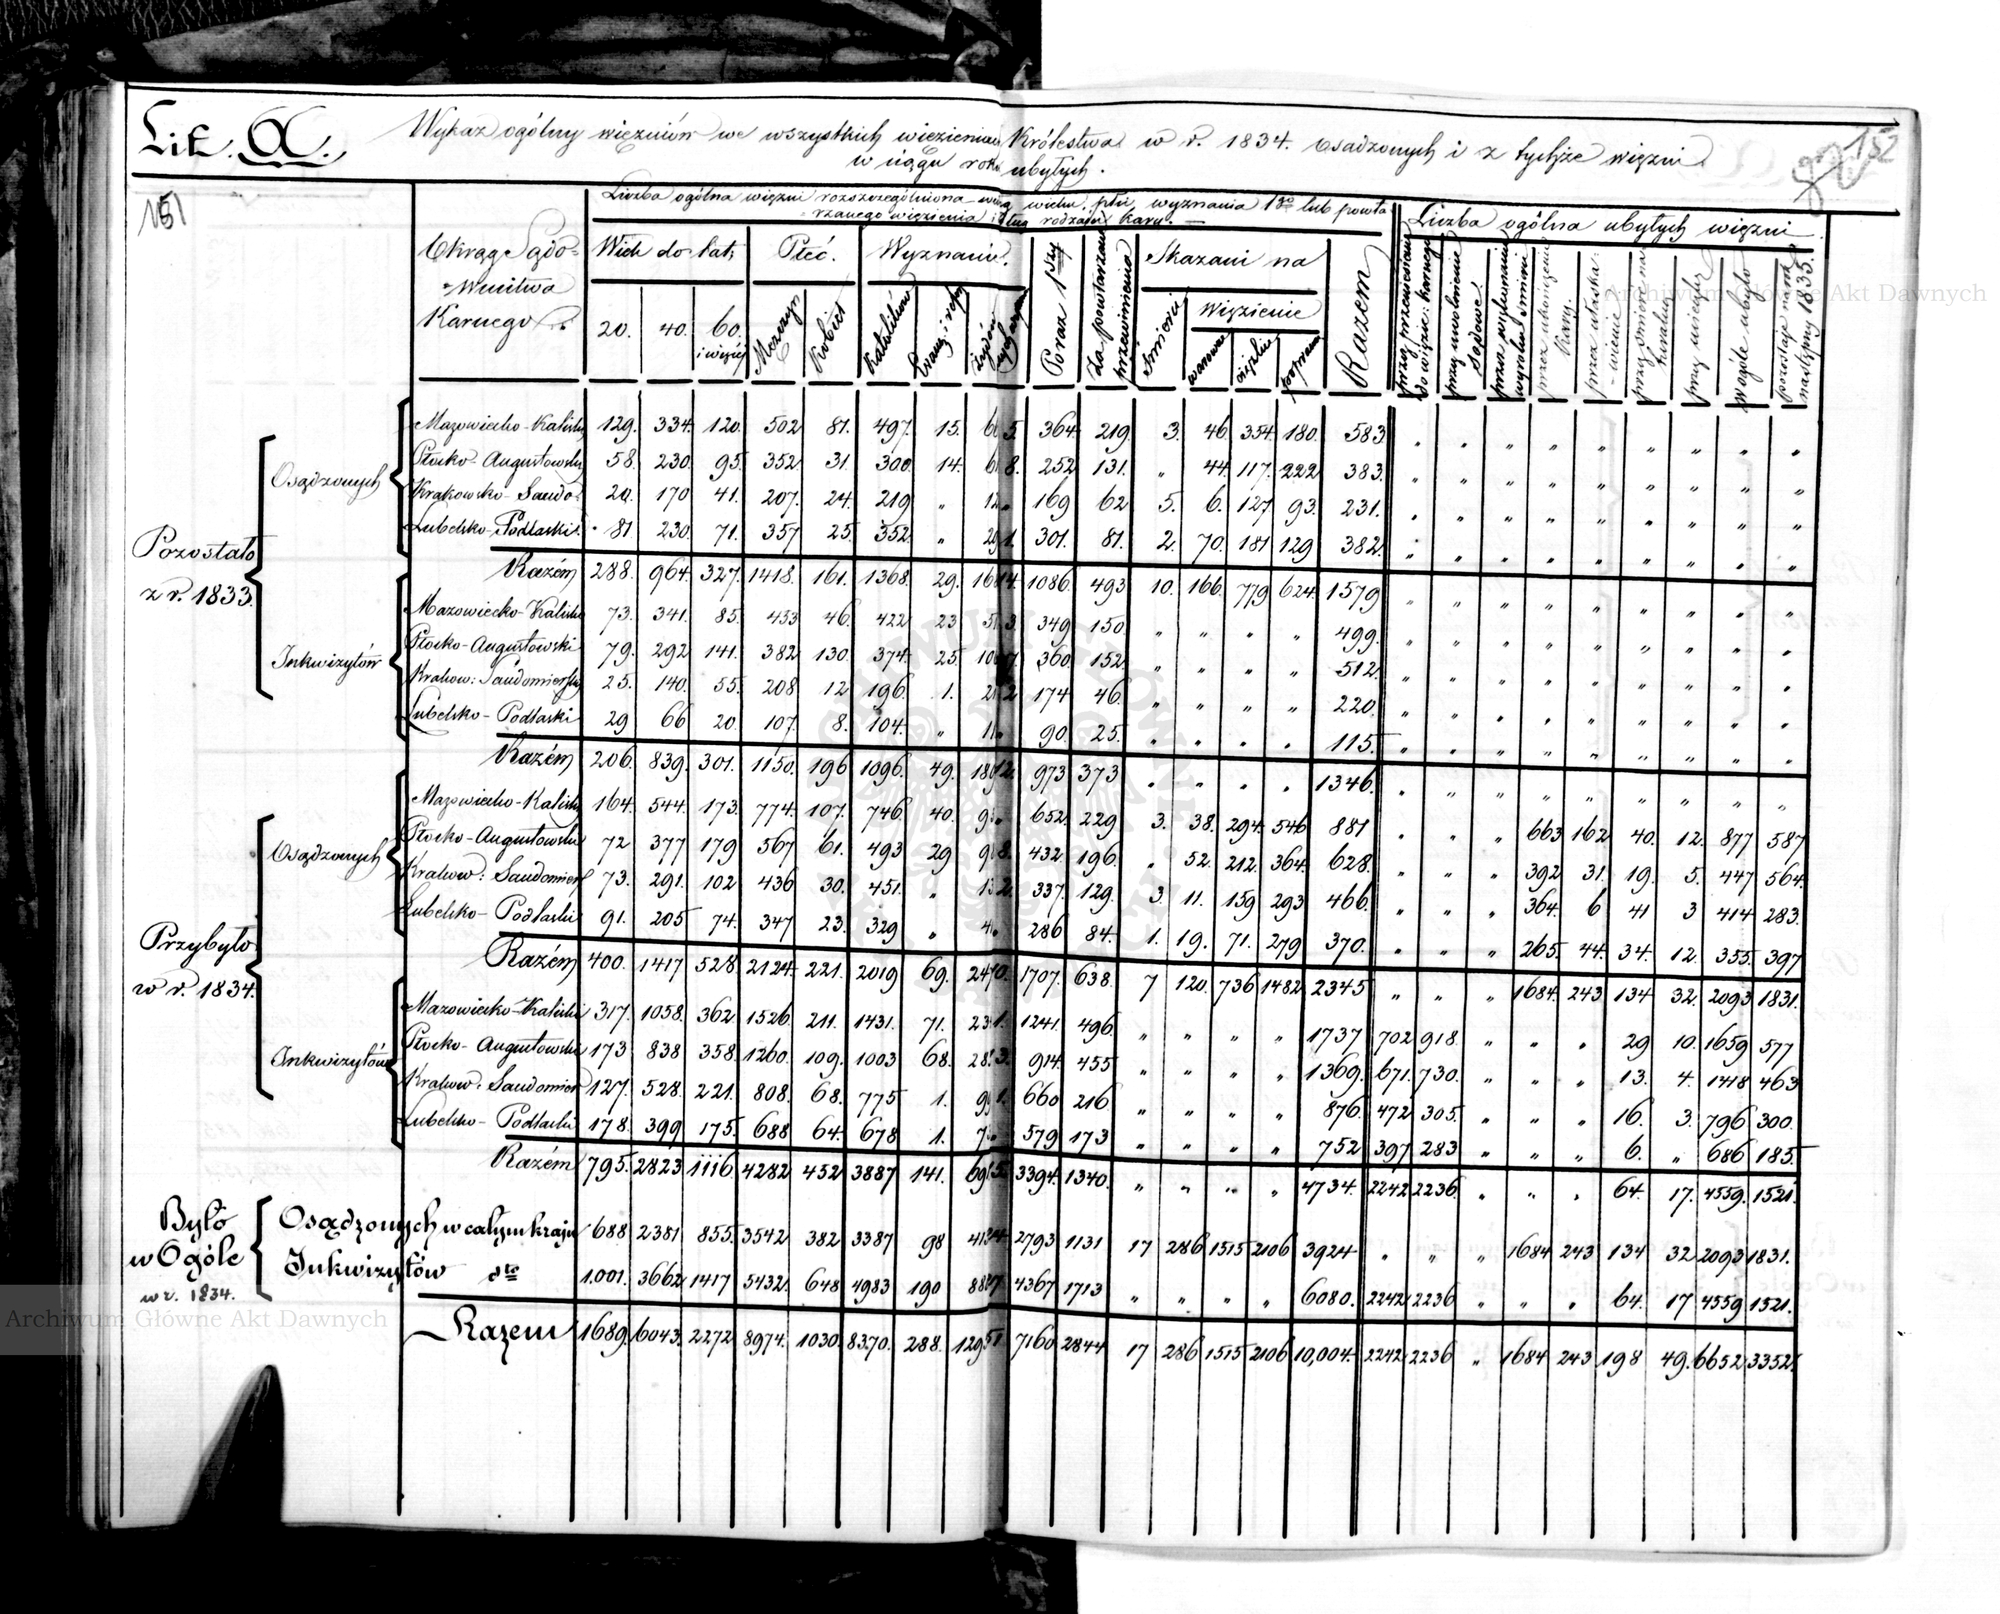 Lit. A.
Wykaz ogólny więźniów we wszystkich więzieniach Królestwa w r. 1834. osadzonych i z tychże więzni
w ciągu roku ubyłych.
151
152
Okręgi Sądo-
wnictwa
Karnego
Liczba ogólna więzni rozszczególniona wieku, płci, wyznania 1go lub powta-
rzanego więzienia i rodzaju kary.
Liczba ogólna ubyłych więzni
Wiek do lat, Płeć. Wyznanie. Poraz 1szy Za powtórzenie przewinienia Skazani na Razem
20. 40. 60. i więcej Mężczyzn Kobiet Katolików Żydów śmierci Więzienie warowne ciężkie poprawcze
przez przeniesienie do więzień: karnego przez uwolnienie sądowe przez wykonanie wyroku śmierci przez ukończenie kary. przez ułaska-wienie przez śmierć naturalną przez ucieczkę w ogóle ubyło pozostaje na rok następny 1835.
Pozostało
z r. 1833.
Osądzonych
Mazowiecko-Kaliski 129. 334. 120. 502 81. 497. 15. 364. 219. 3. 46. 354. 180. 583
Płocko-Augustowski 58. 230. 95. 352 31. 300. 14. 252 131. " 44. 117. 222 383.
Krakowsko-Sando- 20. 170 41. 207. 24. 219 " 12 " 169 62 5. 6. 127 93. 231.
Lubelsko-Podlaski 81. 230. 71. 357 25. 352. " 301. 81. 2. 70. 181 129 382.
Razém 288. 964. 327. 1418. 161. 1368. 29. 1086. 493 10. 166. 779 624. 1579
Inkwizytów
Mazowiecko-Kaliski 73. 341. 85. 453 46. 422 23 349 150. " " " " 499.
Płocko-Augustowski 79. 292 141. 382 130. 374. 25. 360. 152. " " " " 512.
Krakow: Sandomierski 25. 140. 55. 208 12 196. 1. 174 46. " " " " 220.
Lubelsko-Podlaski 29 66 20. 107. 8. 104. " 90. 25. " " " " 115.
Razém 206. 839. 301. 1150. 196 1096. 49. 973 373 " " " " 1346.
Przybyło
w r. 1834.
Osądzonych
Mazowiecko-Kaliski 164. 544. 173. 774. 107. 746. 40. 652. 229 3. 38. 294. 546 881 " " " 663 162 40. 12. 877 587
Płocko-Augustowski 72 377 179 567 61. 493 29 432 196. " 52. 212. 364. 628. " " " 392 31. 19. 5. 447 564.
Krakow: Sandomier 73. 291. 102 436 30. 451. " 337. 129. 3. 11. 159 293 466. " " " 364. 6 41 3 414 283.
Lubelsko-Podlaski 91. 205 74. 347 23. 329 " 286 84. 1. 19. 71. 279 370. " " " 265. 44. 34. 12. 355. 397
Razém 400. 1417 528. 2124. 221. 2019 69. 1707. 638. 7 120. 736 1482 2345 " " " 1684. 243 134 32 2093 1831.
Inkwizytów
Mazowiecko-Kaliski 317. 1058. 362 1526. 211. 1431. 71. 1241. 496. " " " " 1737 702 918. " " " 29 10. 1659 577
Płocko-Augustowski 173 838 358. 1260. 109. 1003 68. 914. 455 " " " " 1369. 671. 730. " " " 13. 4. 1418 463
Krakow. Sandomier 127. 528. 221. 808. 68. 775 1. 660 216 " " " " 876. 472 305. " " " 16. 3. 796 300.
Lubelsko-Podlaski 178. 399 175. 688 64. 678 1. 579 173 " " " " 752 397 283 " " " 6. " 686 185.
Razém 795. 2823 1116. 4282 452 3887 141. 3394. 1340. " " " " 4734. 2242 2236 " " " 64. 17. 4559. 1521.
Było
w Ogóle
w r. 1834.
Osądzonych w całym kraju 688 2381 855. 3542 382 3387 98 2793 1131 17 286 1515 2106 3924 " " " 1684 243 134 32 2093 1831.
Inkwizytów dto 1.001. 3662 1417 5432. 648 4983 190 4367 1713 " " " " 6080. 2242 2236 " " " 64. 17 4559 1521.
Razem 1689. 6043. 2272. 8974. 1030. 8370. 288. 7160 2844 17 286 1515 2106 10,004. 2242 2236 " 1684 243 198 49. 6652 3352.
Archiwum Główne Akt Dawnych
Archiwum Główne Akt Dawnych